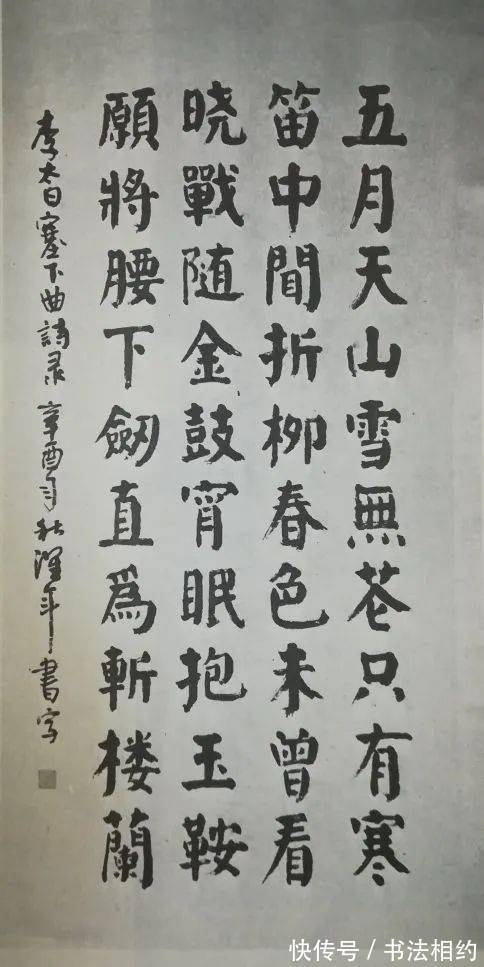 五月天山雪無花只有寒
笛中聞折柳春色未曾看
晓戰随金鼓宵眠抱玉鞍
願將腰下劒直爲斬楼蘭
李太白塞下曲詩录 辛酉 秋 年書写
快传号/书法相约